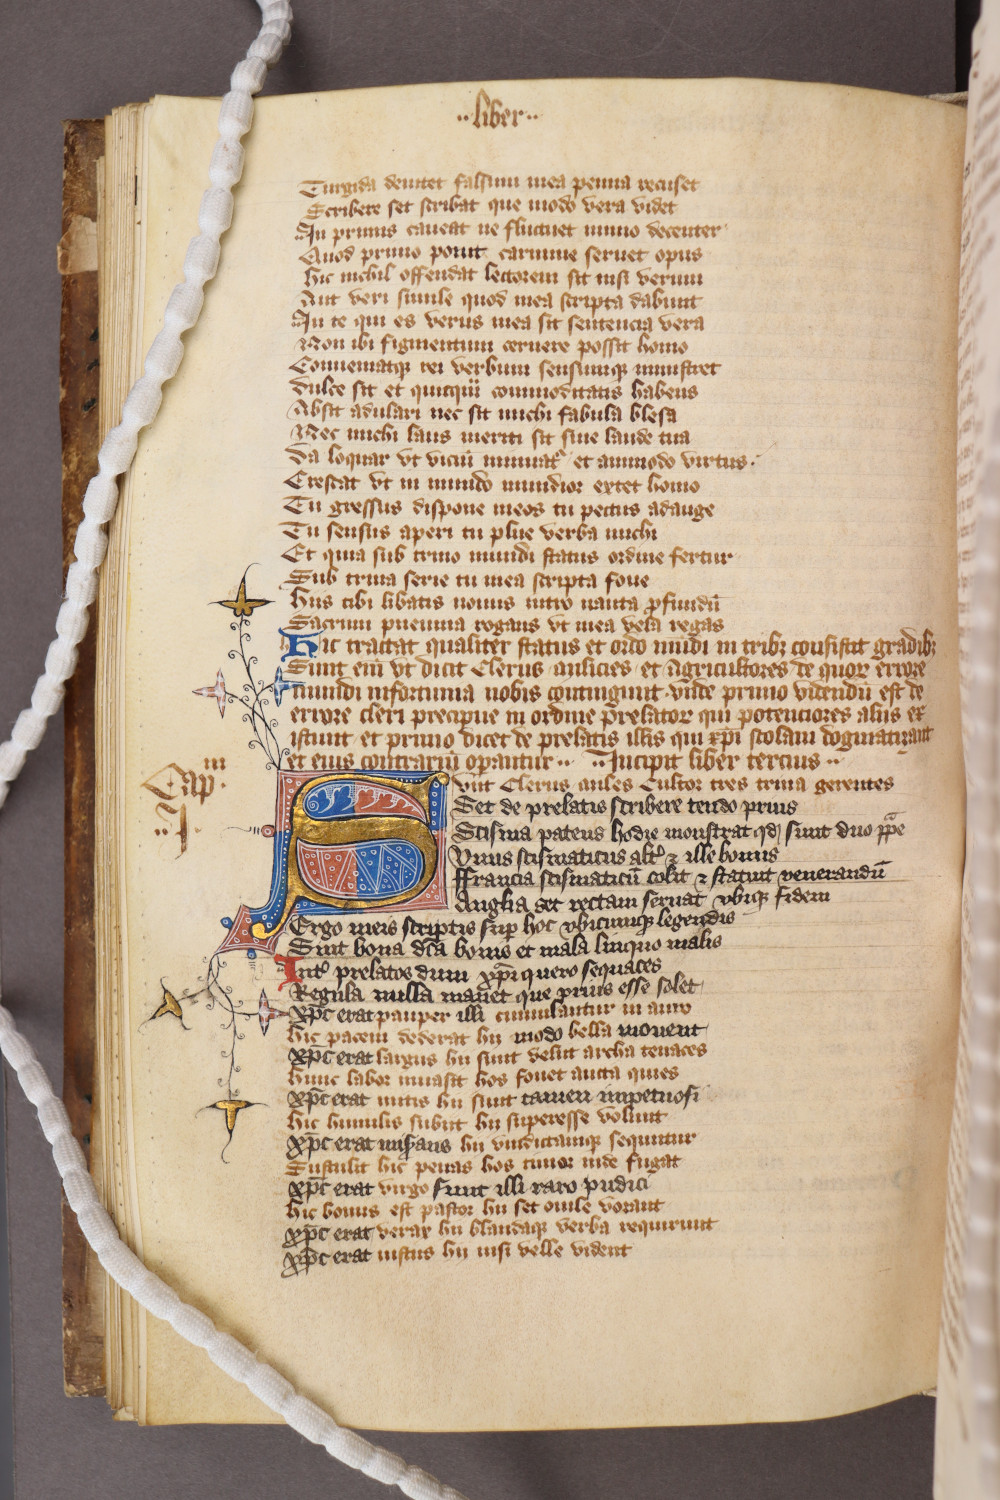 ··liber··
Turgida deuitet falsum mea penna recuset
Scribere set scribat que modo vera videt
In primis caueat ne fluctuet immo decenter
Quod primo ponit carmine seruet opus
Hic nichil offendat lectorem sit nisi verum
Aut veri simile quod mea scripta dabunt
In te qui es verus mea sit sentencia vera
Non ibi figmentum cernere possit homo
Conueniatqȝ rei verbum sensumqȝ ministret
Dulce sit et quicqͣm commoditatis habens
Absit adulari nec sit michi fabula blesa
Nec michi laus meriti sit sine laude tua
Da loquar vt viciū minuatᷣ et ammodo virtus·
Crescat vt in mundo mundior extet homo
Tu gressus dispone meos tu pectus adauge
Tu sensus aperi tu plue verba michi
Et quia sub trino mundi status ordine fertur
Sub trina serie tu mea scripta foue
Hiis tibi libatis nouus intro nauta ꝓfundū
Sacrum pneuma rogans vt mea vela regas
Hic tractat qualiter status et ordo mūdi in tribȝ consistit gradibȝ
Sunt em̄ vt dicit Clerus milicies et Agricultores de quoꝝ errore
mundi infortunia nobis contingunt vnde primo videndū est de
errore cleri precipue in ordine prelatoꝝ qui potenciores aliis ex
istunt et primo dicet de prelatis illis qui xp̄i scolam dogmatizant
et eius contrariū operantur·· Incipit liber tercius··
Capᵐ
·i·
Sunt Clerus miles Cultor tres trina gerentes
Set de prelatis scribere tendo prius
Scisma patens hodie monstrat qd sunt duo ꝑpe
Vnus scismaticus altᷣ ⁊ ille bonus
Ffrancia scismaticū colit ⁊ statuit venerandū
Anglia set rectam seruat vbiqȝ fidem
Ergo meis scriptis suꝑ hoc vbicumqȝ legendis
Sint bona dc̄a bonis et mala linquo malis
Intᷣ prelatos dum xp̄i quero sequaces
Regula nulla manet que prius esse solet
Xp̄c erat pauper illi cumulantur in auro
Hic pacem dederat hii modo bella mouent
Xp̄c erat largus hii sunt velut archa tenaces
Hunc labor inuasit hos fouet aucta quies
Xp̄c erat mitis hii sunt tamen impetuosi
Hic humilis subiit hii superesse volunt
Xp̄c erat misᷣans hii vindictamqȝ sequntur
Sustulit hic penas hos timor inde fugat
Xp̄c erat virgo sunt illi raro pudici
Hic bonus est pastor hii set ouile vorant
Xp̄c erat verax hii blandaqȝ verba requirunt
Xp̄c erat iustus hii nisi velle vident